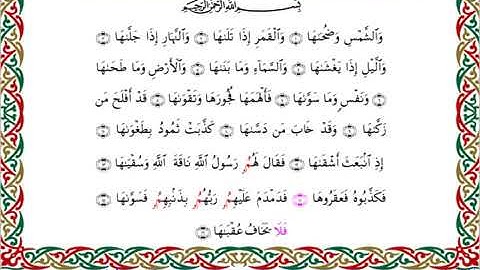 بِسْمِ ٱللَّهِ ٱلرَّحْمَٰنِ ٱلرَّحِيمِ
وَٱلشَّمْسِ وَضُحَىٰهَا ۝ وَٱلْقَمَرِ إِذَا تَلَىٰهَا ۝ وَٱلنَّهَارِ إِذَا جَلَّىٰهَا ۝
وَٱلَّيْلِ إِذَا يَغْشَىٰهَا ۝ وَٱلسَّمَآءِ وَمَا بَنَىٰهَا ۝ وَٱلْأَرْضِ وَمَا طَحَىٰهَا
۝ وَنَفْسٍ وَمَا سَوَّىٰهَا ۝ فَأَلْهَمَهَا فُجُورَهَا وَتَقْوَىٰهَا ۝ قَدْ أَفْلَحَ مَن
زَكَّىٰهَا ۝ وَقَدْ خَابَ مَن دَسَّىٰهَا ۝ كَذَّبَتْ ثَمُودُ بِطَغْوَىٰهَا ۝
إِذِ ٱنۢبَعَثَ أَشْقَىٰهَا ۝ فَقَالَ لَهُمُۥ رَسُولُ ٱللَّهِ نَاقَةَ ٱللَّهِ وَسُقْيَىٰهَا ۝
فَكَذَّبُوهُ فَعَقَرُوهَا ۝ فَدَمْدَمَ عَلَيْهِمُۥ رَبُّهُمُۥ بِذَنۢبِهِمُۥ فَسَوَّىٰهَا ۝
فَلَا يَخَافُ عُقْبَىٰهَا ۝